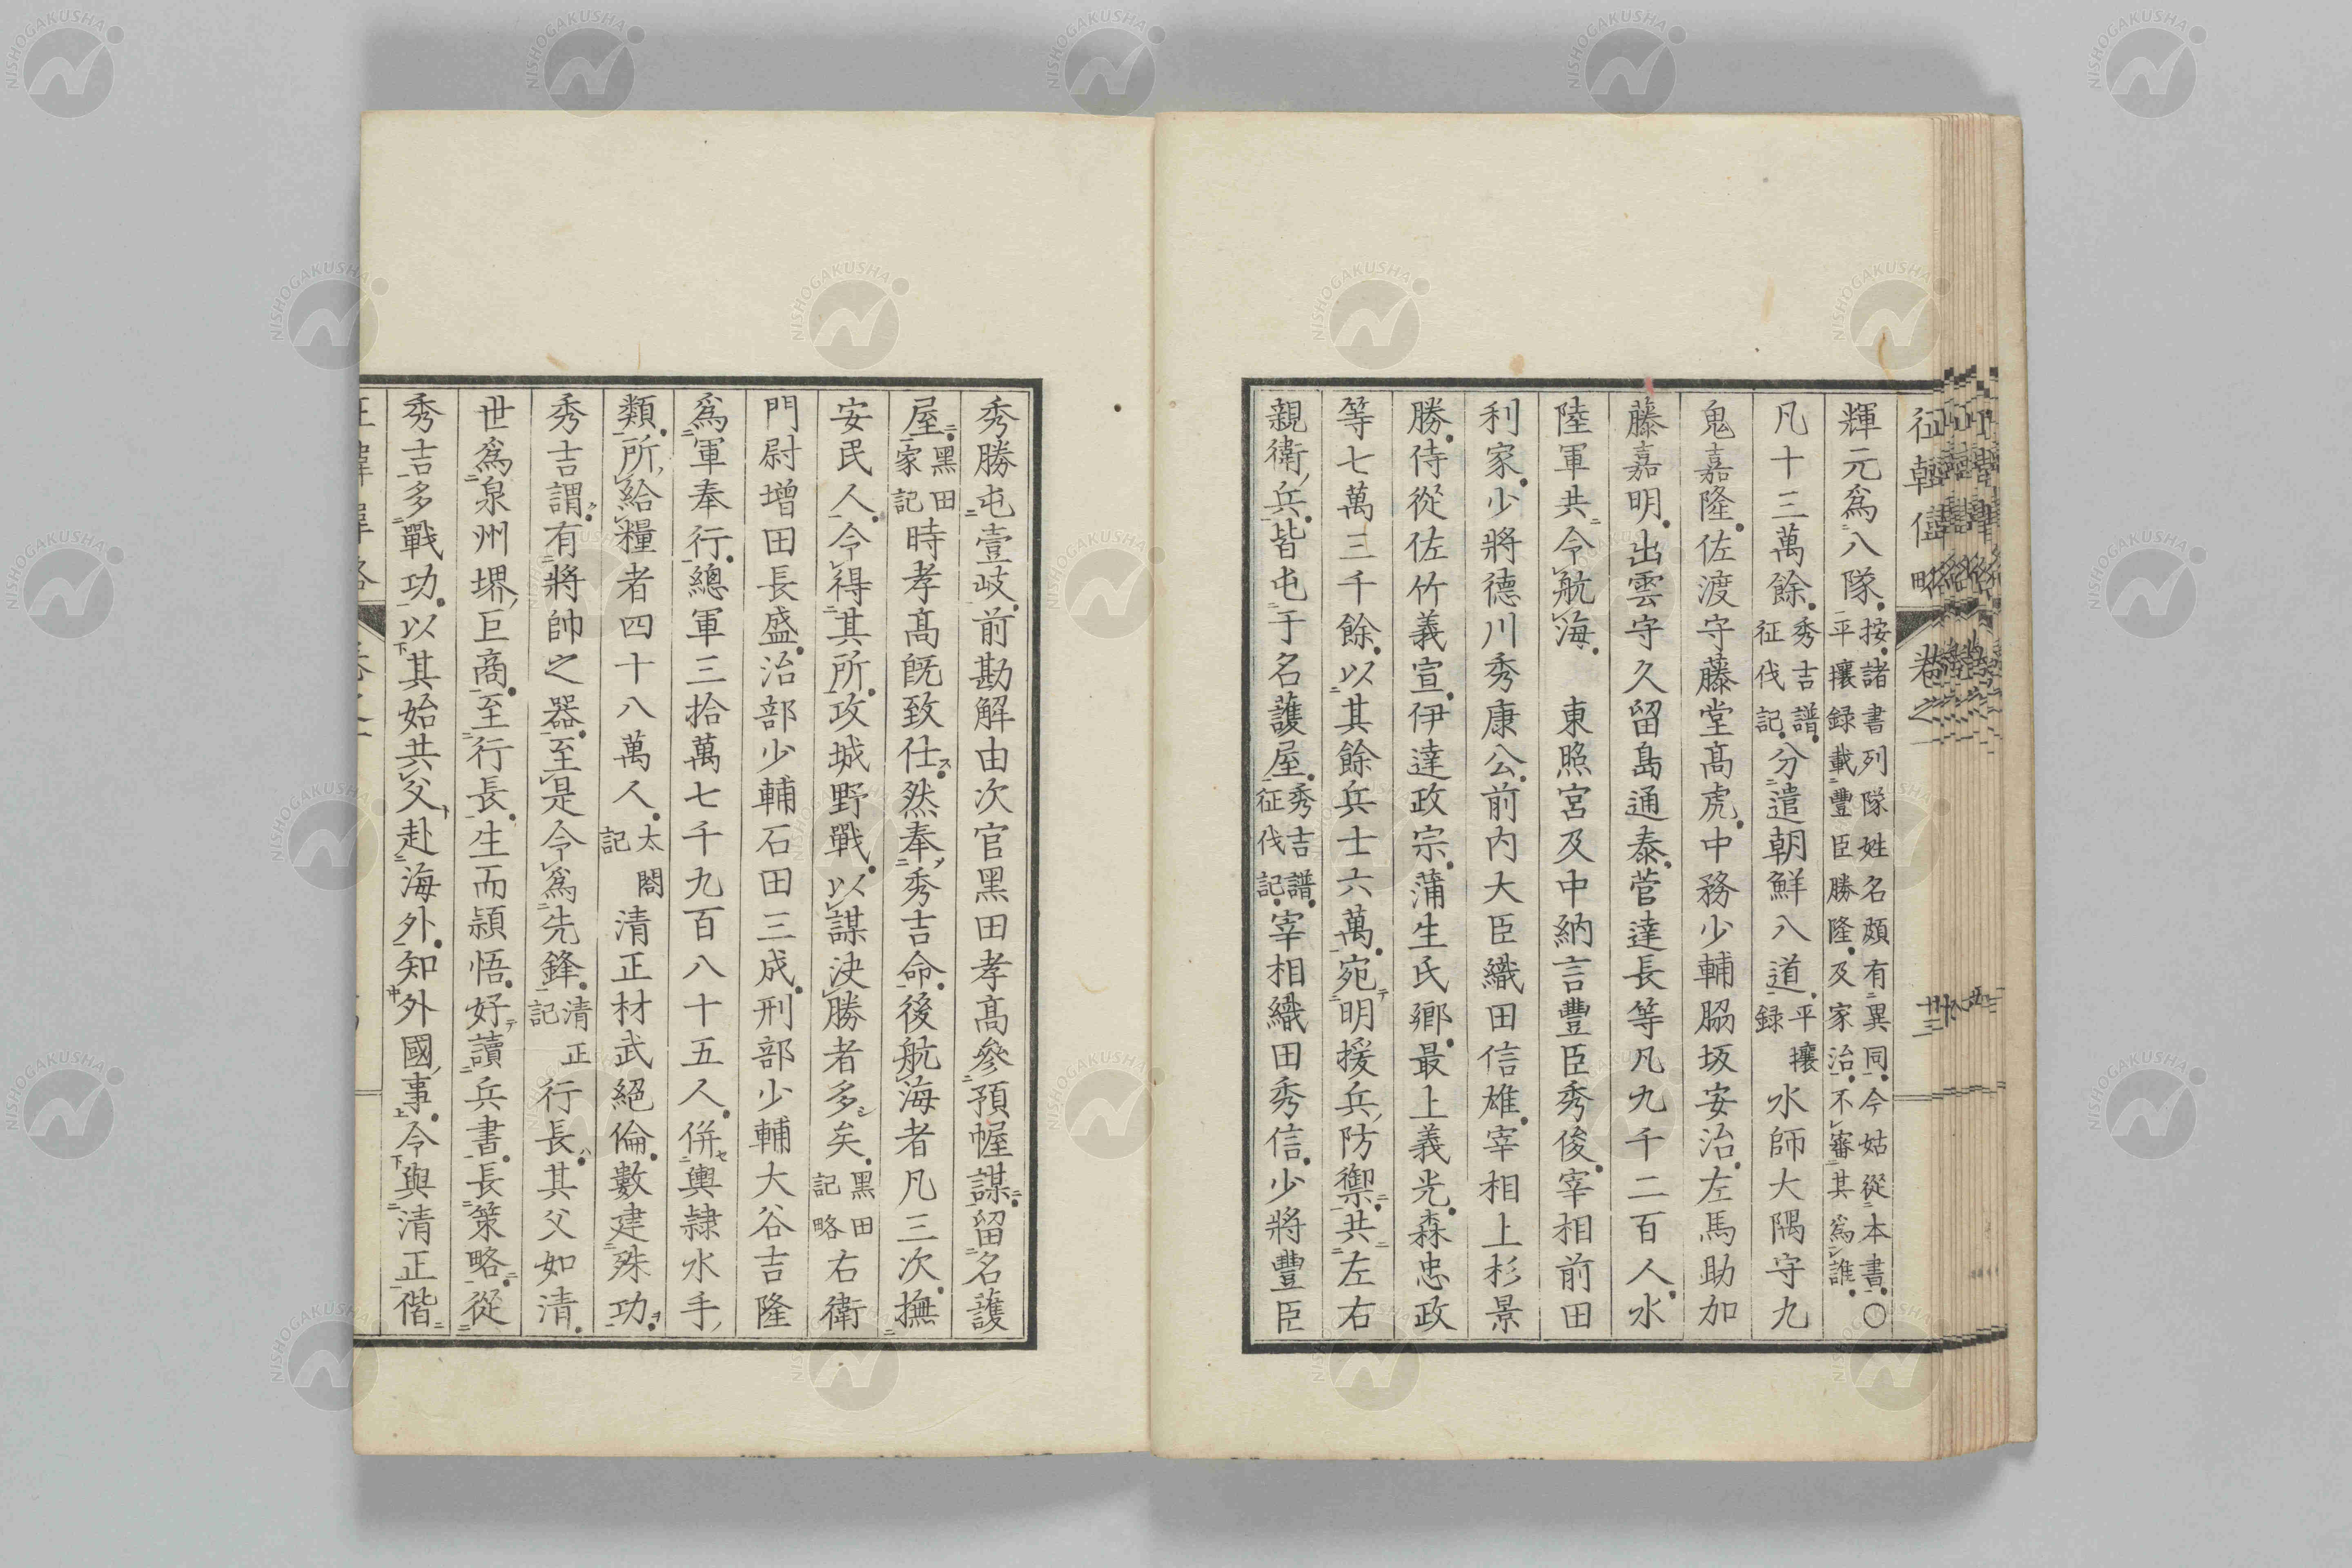 輝元爲八隊按諸書列隊姓名頗有異同今姑從本書○平攘録載豐臣勝隆及家治不審其爲誰
凡十三萬餘秀吉譜征伐記分遣朝鮮八道平攘録水師大隅守九
鬼嘉隆佐渡守藤堂髙虎中務少輔脇坂安治左馬助加
藤嘉明出雲守久留島通泰菅達長等凡九千二百人水
陸軍共令航海 東照宮及中納言豐臣秀俊宰相前田
利家少將德川秀康公前内大臣織田信雄宰相上杉景
勝侍從佐竹義宣伊達政宗蒲生氏鄉最上義光森忠政
等七萬三千餘以其餘兵士六萬宛明援兵防禦共左右
親衛兵皆屯于名護屋秀吉譜征伐記宰相織田秀信少將豐臣
秀勝屯壹岐前勘解由次官黑田孝髙參預幄謀留名護
屋黑田家記時孝髙既致仕然奉秀吉命後航海者凡三次撫
安民人令得其所攻城野戰以謀決勝者多矣黑田記略右衛
門尉增田長盛治部少輔石田三成刑部少輔大谷吉隆
爲軍奉行總軍三拾萬七千九百八十五人併輿隷水手
類所給糧者四十八萬人太閤記清正材武絕倫數建殊功
秀吉謂有將帥之器至是令爲先鋒清正記行長其父如清
世爲泉州堺巨商至行長生而穎悟好讀兵書長策略從
秀吉多戰功以其始共父赴海外知外國事令與清正偕